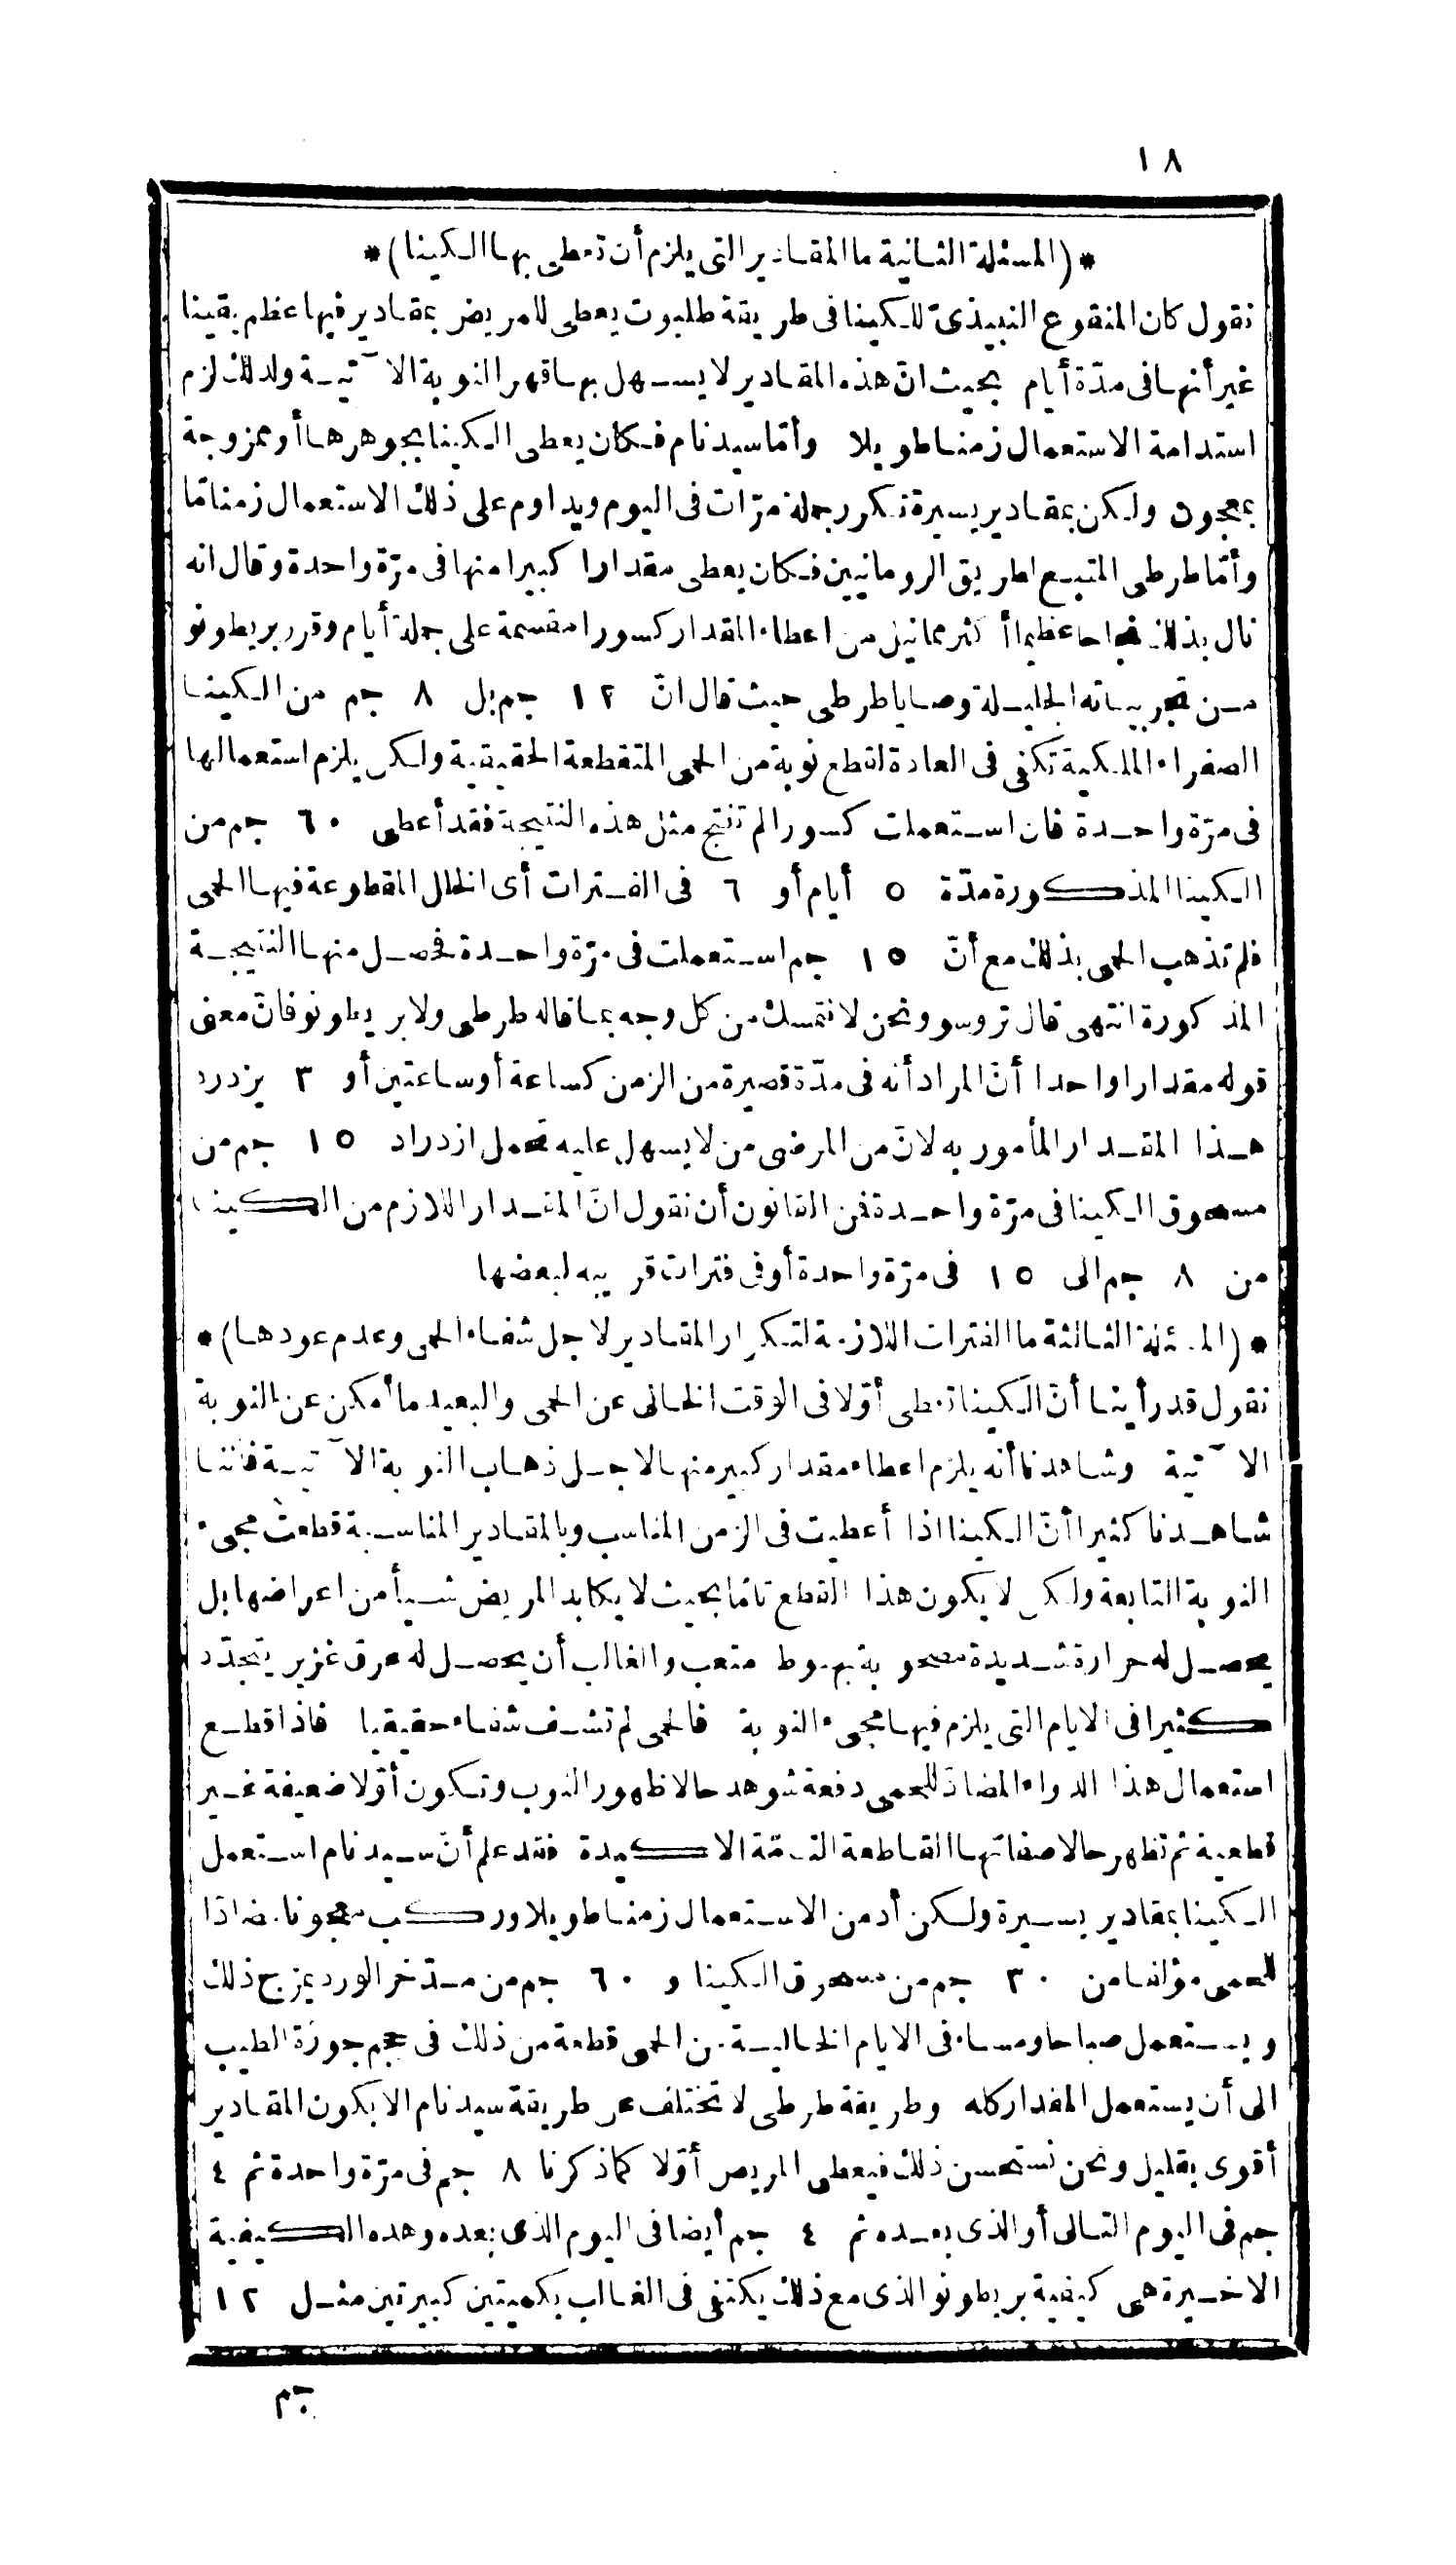 ١٨
* (المسئلة الثانية ما المقادير التى يلزم أن تعطى بها الكينا) *
نقول كان المنقوع النبيذىّ للكينا فى طريقة طلبوت يعطى للمريض بمقادير فيها عظم يقينا
غير أنها فى مدّة أيام بحيث انّ هذه المقادير لا يسهل بها قهر النوبة الآتية ولذلك لزم
استدامة الاستعمال زمنا طويلا وأمّا سيدنام فكان يعطى الكينا بجوهرها أو ممزوجة
بمعجون ولكن بمقادير يسيرة تكرر جملة مرّات فى اليوم ويداوم على ذلك الاستعمال زمنا مّا
وأمّا طرطى المتبع لطريق الرومانيين فكان يعطى مقدارا كبيرا منها فى مرّة واحدة وقال انه
نال بذلك نجاحا عظيما أكثر مما نيل من اعطاء المقدار كسورا مقسمة على جملة أيام وقرر بريطونو
من تجربياته الجليلة وصايا طرطى حيث قال انّ ١٢ جم بل ٨ جم من الكينا
الصفراء الملكية تكفى فى العادة لقطع نوبة من الحمى المتقطعة الحقيقية ولكن يلزم استعمالها
فى مرّة واحدة فان استعملت كسورا لم تنتج مثل هذه النتيجة فقد أعطى ٦٠ جم من
الكينا المذكورة مدّة ٥ أيام أو ٦ فى الفترات أى الخلل المقطوعة فيها الحمى
فلم تذهب الحمى بذلك مع أنّ ١٥ جم استعملت فى مرّة واحدة فحصل منها النتيجة
المذكورة انتهى قال تروسو ونحن لا نتمسك من كل وجه بما قاله طرطى ولا بريطونو فانّ معنى
قوله مقدارا واحدا أنّ المراد أنه فى مدّة قصيرة من الزمن كساعة أو ساعتين أو ٣ يزدرد
هذا المقدار المأمور به لانّ من المرضى من لا يسهل عليه تحمل ازدراد ١٥ جم من
مسحوق الكينا فى مرّة واحدة فمن القانون أن نقول انّ المقدار اللازم من الكينا
من ٨ جم الى ١٥ فى مرّة واحدة أو فى فترات قريبه لبعضها
* (المسئلة الثالثة ما الفترات اللازمة لتكرار المقادير لاجل شفاء الحمى وعدم عودها) *
نقول قد رأينا أنّ الكينا تعطى أوّلا فى الوقت الخالى عن الحمى والبعيد ما أمكن عن النوبة
الآتية وشاهدنا أنه يلزم اعطاء مقدار كبير منها لاجل ذهاب النوبة الآتية فاننا
شاهدنا كثيرا أنّ الكينا اذا أعطيت فى الزمن المناسب وبالمقادير المناسبة قطعت مجىء
النوبة التابعة ولكن لا يكون هذا القطع تامّا بحيث لا يكابد المريض شيأ من اعراضها بل
يحصل له حرارة شديدة مصحوبة بهبوط متعب والغالب أن يحصل له عرق غزير يتجدّد
كثيرا فى الايام التى يلزم فيها مجىء النوبة فالحمى لم تشف شفاء حقيقيا فاذا قطع
استعمال هذا الدواء المضادّ للحمى دفعة شوهد حالا ظهور النوب وتكون أوّلا ضعيفة غير
قطعية ثم تظهر حالا صفاتها القاطعة التامّة الاكيدة فقد علم أنّ سيدنام استعمل
الكينا بمقادير يسيرة ولكن أدمن الاستعمال زمنا طويلا وركب معجونا مضادّا
للحمى مؤلفا من ٣٠ جم من مسحوق الكينا و ٦٠ جم من مدّخر الورد يمزج ذلك
ويستعمل صباحا ومساء فى الايام الخالية من الحمى قطعة من ذلك فى حجم جوزة الطيب
الى أن يستعمل المقدار كله وطريقة طرطى لا تختلف عن طريقة سيدنام الا بكون المقادير
أقوى بقليل ونحن نستحسن ذلك فيعطى المريض أوّلا كما ذكرنا ٨ جم فى مرّة واحدة ثم ٤
جم فى اليوم التالى أو الذى بعده ثم ٤ جم أيضا فى اليوم الذى بعده وهذه الكيفية
الاخيرة هى كيفية بريطونو الذى مع ذلك يكتفى فى الغالب بكميتين كبيرتين مثل ١٢
جم